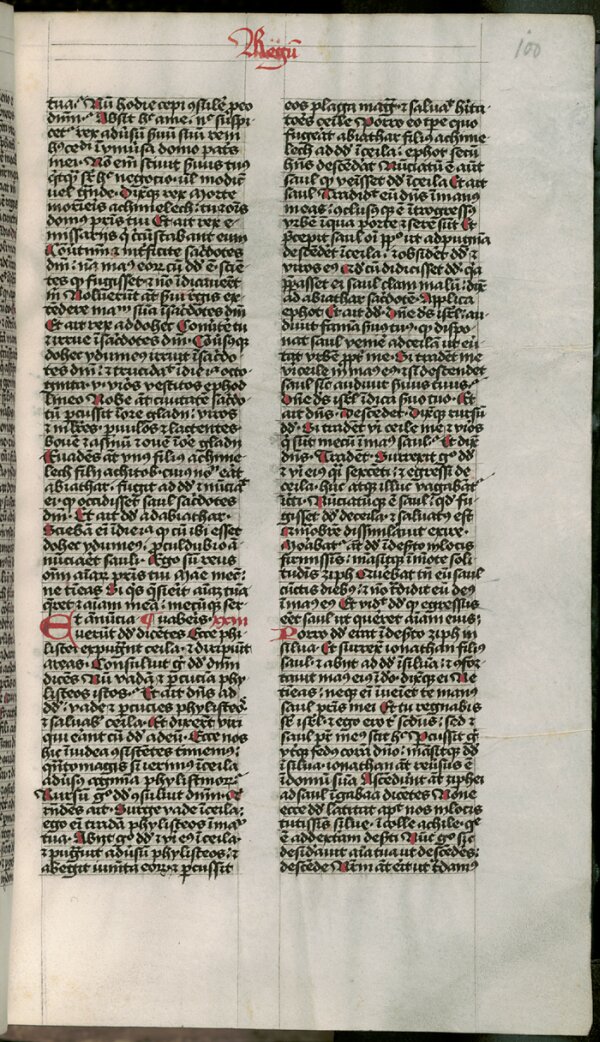 Regū
100
tua. Nū hodie cepi ɔsulē peo
dim̄. Absit h̄ ame. n̄ suspi-
cet rex adūsū s̄uū suū rem
hꝯcedi ī ymūsa domo patis
mei. No em̄ sciuit s̄uus tuꝯ
qͥtqͣ sr̄ h̄ negocio. ul̄ modicū
uel gͬnde. Dixitqꝫ rex Morte
morieris achimelech. tu ⁊ oīs
domꝯ pris tui Et ait rex e-
missarijs qͥ cͥcūstabant eum
Cōūtim̄ ⁊ inťficite sac̄dotes
dn̄i. nā manꝰ eorꝝ cū dd̄ ē. scīe-
tes qꝫ fugisset. ⁊ nō īdicauert̄
m̄ Noluerūt āt s̄ui regis ex-
tedere manꝰ suā ī sac̄dotes dn̄i
Et ait rex ad dohec Conūtē tu
⁊ irrue ī sac̄dotes dn̄i. Cōūsusqꝫ
dohec ydumeꝰ irruit ī sac̄do-
tes dn̄i. ⁊ trucidaͭ ī die illa octo-
gintā v. viros vestitos ephod
lineo Nobe āt ciuitate sac̄do-
tū ꝑcussit ī ore gladii. viros
⁊ ml̄ieres. ꝑuulos ⁊ lactentes.
bouē ⁊ asinū ⁊ ouē ī ore gladii
Euadēs āt vnꝰ filiꝰ achime-
lech filii achitob. cuiꝰ nom̄ erat
abiathar. fugit ad dd̄ ⁊ nūciaͭ
ei. qꝫ occidisset saul sac̄dotes
dn̄i. Et ait dd̄ ad abiathar.
Sciebā em̄ ī die illa qꝫ cū ibi esset
dohec ydumeꝰ. ꝓculdubio ā-
nūciaret sauli. Ego sū reus
om̄ aīaꝝ pris tui Mane mecū.
ne timeas Si qͥs qͥsierit aīaꝫ tuā
qͥret ⁊ aīam meā. mecūqꝫ ser-
Et ānūcia- uaberis. XXIII
uerūt dd̄ dicētes Ecce phi-
listei expugnt ceila. ⁊ diripiūt
areas. Consuluit g̊ dd̄ dn̄m
dicēs Nū vadā ⁊ ꝑcutiā phy-
listeos istos. Et ait dn̄s ad
dd̄. vade ⁊ ꝑcuties phylisteoꝝ
⁊ saluabꝭ ceila. Et dixert̄ viri
qui erāt cū dd̄ ad eū. Ecce nos
hic ī iudea ꝯsistētes timemꝰ.
qͣntomagis si ierimꝰ ī ceila
adūsꝰ agmina phylistinorꝝ
Rursū g̊ dd̄ ꝯsuluit dn̄m. Qui
rn̄dēs ait. Surge vade ī ceila.
ego em̄ tradā phylisteos ī manu
tua. Abijt g̊ dd̄ ⁊ viri eiꝰ ī ceila.
⁊ pugͣuit adūsū phylisteos. ⁊
abegit iumēta eorꝝ. ⁊ ꝑcussit
eos plaga magͣ. ⁊ saluaͭ hīta-
tores ceile Porro eo tꝑe quo
fugerat abiathar filiꝰ achime-
lech ad dd̄ ī ceila. ephot secū
hn̄s descēdat Nūciatū ē aūt
saul qꝫ venisset dd̄ ī ceila Et ait
saul Tradidit eū dn̄s ī manꝰ
meas. ꝯclususqꝫ ē ītrogressꝰ
vrbē ī qua porte ⁊ sere sūt Et
p̄cepit saul om̄i ppl̄o ut ad pugnā
descēdēt ī ceila. ⁊ obsidēt dd̄ ⁊
viros eiꝰ Qd̄ cū didicisset dd̄. qͣ
p̄passet ei saul clam malū. dixit
ad abiathar sac̄dotē. Applica
ephot Et ait dd̄. Dn̄e ds̄ isrl̄. au-
diuit famā s̄uus tuꝰ. qꝫ dispo-
nat saul venire ad ceilā ut eu-
tͣt vrbē ꝓpt̄ me. Si tradēt me
viri ceile in manꝰ eiꝰ. ⁊ si descendet
saul sic audiuit s̄uus tuus.
Dn̄e ds̄ isrl̄ īdica s̄uo tuo. Et
ait dn̄s. Descēdet. Dixitqꝫ rursū
dd̄. Si tradēt vri ceile me ⁊ viros
qͥ sūt mecū ī manꝰ saul. Et dixͭ
dn̄s. Tradēt. Surrexit g̊ dd̄
⁊ viri eiꝰ qͣsi sexcēti. ⁊ egressi de
ceila. huc atqꝫ illuc vagabāt
ic̄ti. Nūciatūqꝫ ē saul. qd̄ fu-
gisset dd̄ de ceila. ⁊ saluatꝰ esͭ.
Qūobrē dissimlauit exire.
Morabat̄ āt dd̄ ī deſto ī locis
firmissīs. māsitqꝫ ī mōte soli-
tudīs ziph Querebat tn̄ eū saul
cūctis diebꝰ. ⁊ nō t̄didit eū deꝰ
ī manꝰ eiꝰ Et vidͭ dd̄ qꝫ egressus
eēt saul ut querēt aīam eius.
Porro dd̄ erat ī deſto ziph in
silua. Et surrexͭ ionathan filiꝰ
saul. ⁊ abijt ad dd̄ ī siluā. ⁊ ꝯfor-
tauit manꝰ eiꝰ ī dō. dixitqꝫ ei Ne
timeas. neqꝫ em̄ īueiet te manꝰ
saul pris mei Et tu regnabis
sr̄ isrl̄. ⁊ ego ero t̄ scdus. sed ⁊
saul pr̄ meꝰ scit h̄ Pcussit g̊
vtqꝫ fedꝰ corā dn̄o. māsitqꝫ dd̄
ī silua. ionathan āt reūsus ē
ī domū suā Ascēdūt āt ziphei
ad saul ī gabaa dicētes Nōne
ecce dd̄ latitat apͩ nos ī locis
tutissīs silue. ī colle achile. qͥ
ē ad dextam deſti Nūc g̊ sic
desidauit aīa tua ut descēdēs.
descēde Nrm̄ āt eit ut t̄damꝰ